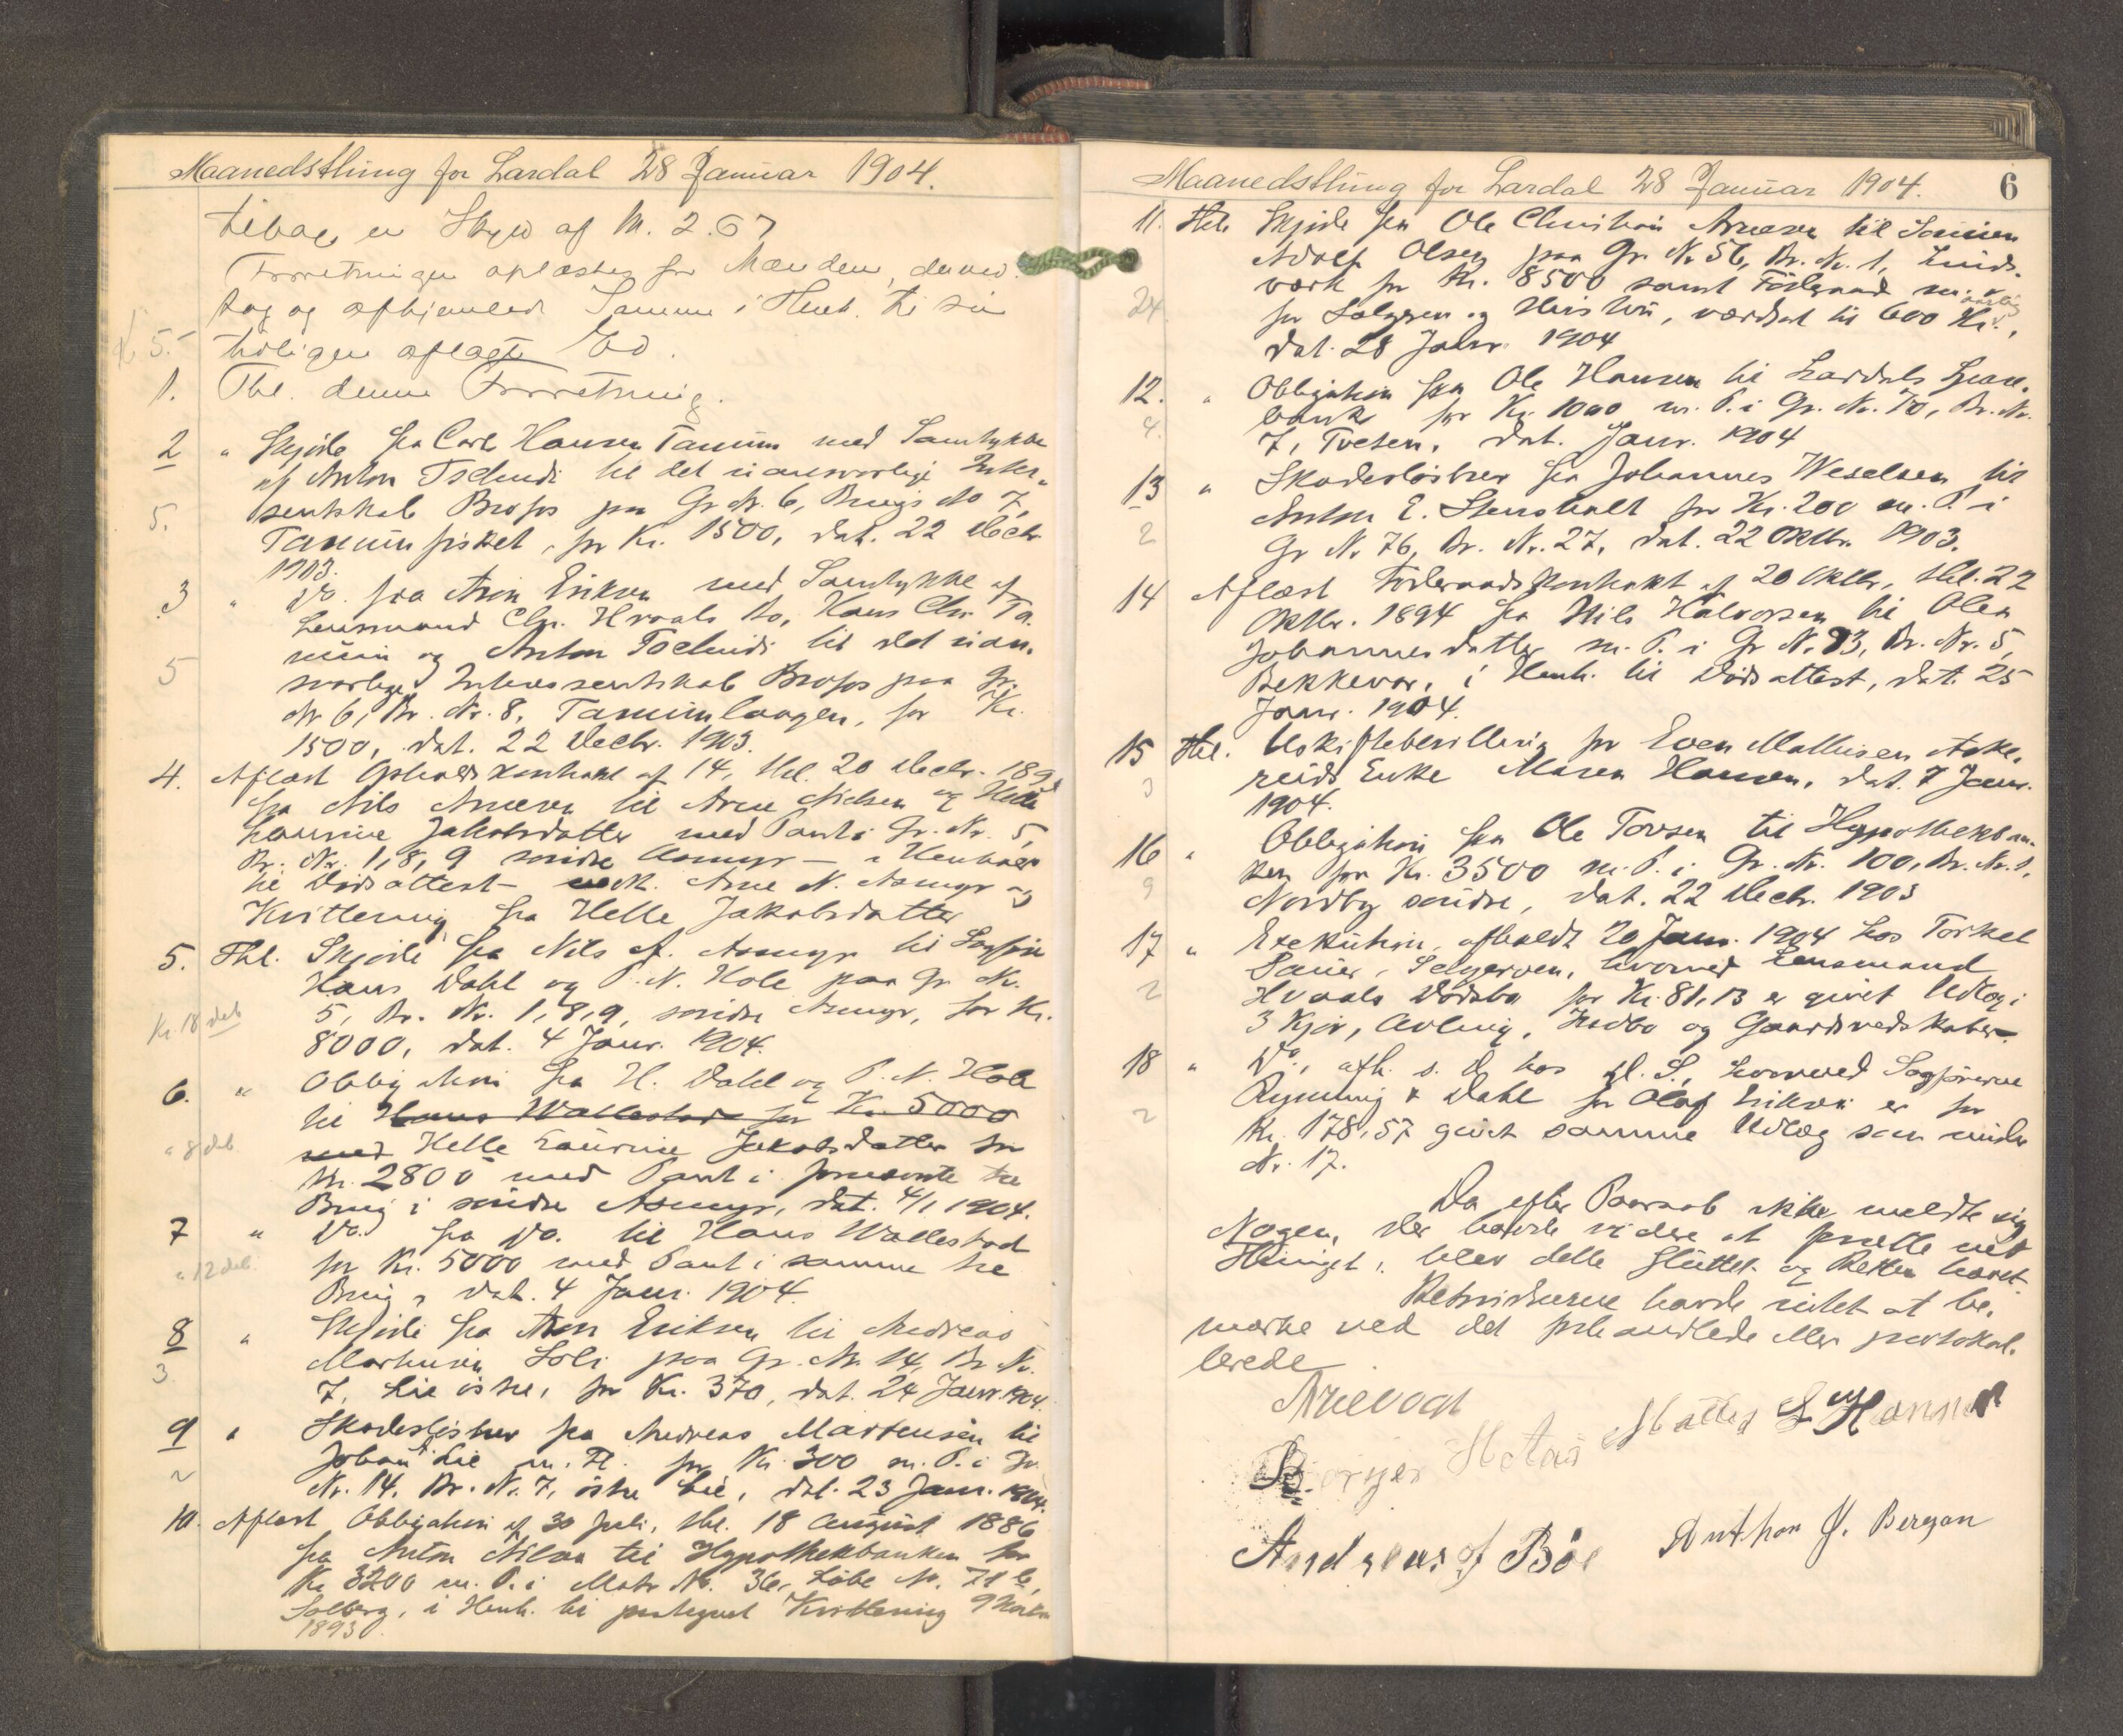 Maanedsthing for Lardal 28 Januar 1904.
tilbage en Skyld af M. 2.67
Forretningen oplæstes for Mændene, derved-
tog og afhjemlede Samme i Henh. til sin
K 5.- tidligere aflagte Ed.
1. Thl. denne Forretning.
2 " Skjøde fra Carl Hansen Tanum med Samtykke
af Anton Tschudi til det uansvarlige Inter-
5. sentskab Brofos paa Gr. Nr. 6, Brugs No 7,
Tanumfisket, for Kr. 1500, dat. 22 Decbr.
1903.
3 " Do. fra Eriksen med Samtykke af
Lensmand Chr. Hvaals Bo, Hans Chr. Ta-
num og Anton Tschudi til det uan-
5 svarlige Interessentskab Brofos paa Gr.
Nr. 6, Br. Nr. 8, Tanumlaagen, for Kr.
1500, dat. 22 Decbr. 1903.
4. Aflæst kontrakt af 14, thl. 20 Decbr. 189
fra Nils Arnesen til Arne Nielsen og Helle
Laurine Jakobsdatter med Pant i Gr. Nr. 5,
Br. Nr. 1, 8, 9 søndre Asmyr – i Henhold
til Dødsattest – vedk. Arne N. Asmyr og
Kvittering fra Helle Jakobsdatter
5. Thl. Skjøde fra Nils A. Asmyr til Sagfører
Hans Dahl og P. N. Hole paa Gr. Nr.
Kr 18 deb 5, Br. Nr. 1, 8, 9, søndre Asmyr, for Kr.
8000, dat. 4 Janr. 1904.
6. " Obligation fra H. Dahl og P. N. Hole
til Hans Wallestad for Kr. 5000
" 8 deb med Helle Laurine Jakobsdatter for
Kr. 2800 med Pant i fornævnte tre
Brug i søndre Asmyr, dat. 4/1 1904.
7 " Do. fra Do. til Hans Wallestad
" 12 deb. for Kr. 5000 med Pant i samme tre
Brug, dat. 4 Janr. 1904.
8 " Skjøde fra Eriksen til Andreas
3. Martinsen Loli paa Gr. Nr. 14, Br. Nr.
7, Lie østre, for Kr. 370, dat. 24 Janr. 1904.
9 " Skadesløsbrev fra Andreas Martensen til
2 Johan A. Lie m. Fl. for Kr. 300 m. P. i Gr.
Nr. 14, Br. Nr. 7, østre Lie, dat. 23 Janr. 1904.
10. Aflæst Obligation af 30 Juli, thl. 18 August 1886
fra Anton Nilsen til Hypothekbanken for
Kr. 3200 m. P. i Matr. Nr. 36, Løbe Nr. 71 b,
Solberg, i Henh. til paategnet Kvittering 9
1893.
Maanedsthing for Lardal 28 Januar 1904. 6
11. Thl. Skjøde fra Ole Christian Arnesen til Sønnen
Adolf Olsen paa Gr. Nr. 56, Br. Nr. 1, Linds-
værk for Kr. 8500 samt Føderaad m. aarlig
24. for Sælgeren og Hustru, værdsat til 600 Kr.,
dat. 28 Janr. 1904
12. " Obligation fra Ole Hansen til Lardals Spare-
4. bank for Kr. 1000 m. P. i Gr. Nr. 70, Br. Nr.
7, Tveten, dat. Janr. 1904
13 " Skadesløsbrev fra Johannes Weselsen til
Anton E. Stensholt for Kr. 200 m. P. i
2 Gr Nr. 76, Br. Nr. 27, dat. 22 Oktbr. 1903.
14 Aflæst Føderaadskontrakt af 20 Oktbr, thl. 22
Oktbr. 1894 fra Nils Halvorsen til Olea
Johannesdatter m. P. i Gr Nr. 93, Br. Nr. 5,
Bekkevar, i Henh. til Dødsattest, dat. 25
Janr. 1904.
15 Thl. Uskiftebevilling for Even Mathisen
3 Enke Maren Hansen, dat. 7 Janr.
1904.
16 " Obligation fra Ole Torsen til Hypothekban-
ken for Kr. 3500 m. P. i Gr. Nr. 100, Br. Nr. 1,
9 Nordby søndre, dat. 22 Decbr. 1903
17 " Exekution, afholdt 20 Janr. 1904 hos Torkel
Sauer, hvorved Lensmand
2 Hvaals Dødsbo for Kr. 81,13 er givet Udlæg i
3 Kjør, Avling, Indbo og Gaardsredskaber.
18 " Do., afh. s. D. hos d. S., hvorved Sagførerne
Rynning & Dahl for Olaf Eriksen er for
2 Kr. 178,57 givet samme Udlæg som under
Nr. 17.
Da efter Paaraab ikke meldte sig
Nogen, der havde videre at forrette ved
Thinget, blev dette sluttet og Retten hævet.
Retsvidnerne havde intet at be-
mærke ved det forhandlede eller protokol-
lerede.
Arievogt
Borger Mattes L Hanner
Andreas J Bøe Anthon J. Bergan